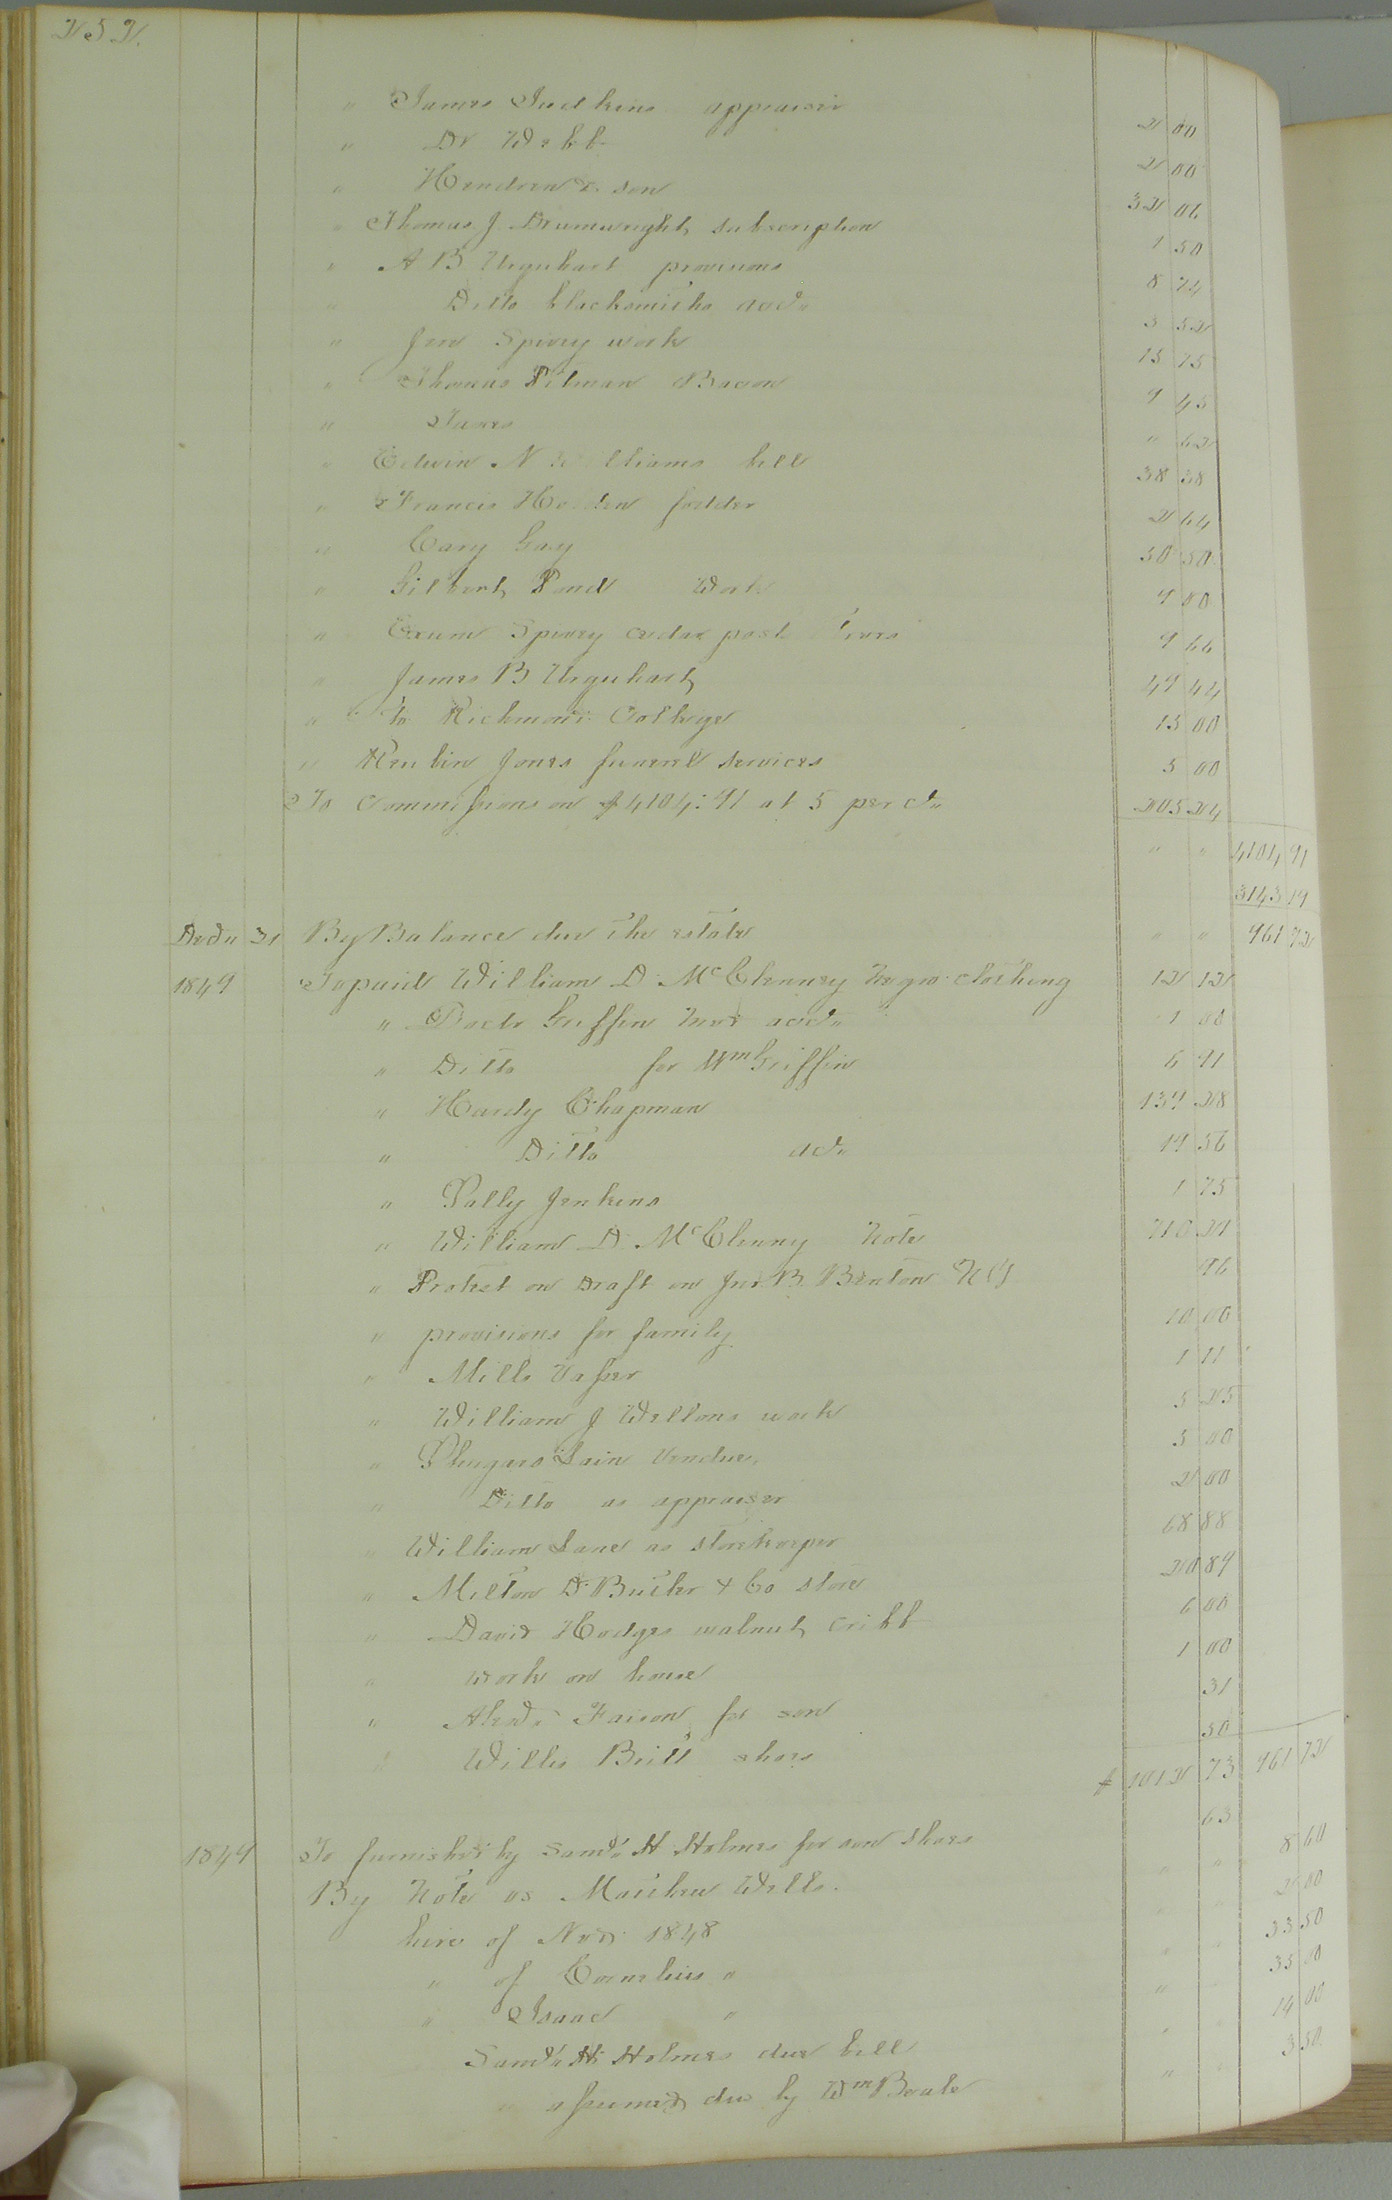 252.
" James Judkins appraiser 2 00
" Dr Webb 2 00
" Hendren & son 32 06
" Thomas J Drumwright subscription 1 50
" A B Urquhart provisions 8 74
" Ditto blacksmiths acct 3 52
" Jno Spivey work 15 75
" Thomas Pitman Bacon 9 45
" Taxes " 62
" Edwin N Williams bill 38 38
" Francis Holden fodder 2 64
" Cary Gay 30 50
" Gilbert Pond Work 9 00
" Exum Spivey cedar post 9 66
" James B Urquhart 49 44
" To Richmond College 15 00
" Reubin Jones funeral services 5 00
To Commissions on $4104:91 at 5 per ct 205 24
" " 4104 91
3143 19
Decr 31 By Balance due the estate " " 961 72
1849 To paid William D. McClenney Negro clothing 12 12
" Doctr Griffin Med acct 1 00
" Ditto for Wm Griffin 6 91
" Hardy Chapman 139 28
" Ditto act 19 56
" Polly Jenkins 1 75
" William D. McClenny Note 710 21
" Protest on Draft on Jno B Benton 96
" provisions for family 10 00
" Mills Vasser 1 11
" William J Wellons work 5 25
" Lain Vendue 3 00
" Ditto as appraiser 2 00
" William Lane as storekeeper 68 88
" Milton D. Butler & Co store 20 89
" David Hodges walnut cribb 6 00
" work on house 1 00
" Faison for son 31
" Willis Britt shoes 50
$ 1012 73 961 72
1849 To furnished by Saml H Holmes for son shoes 63
By Note vs Matthew Wells. " " 8 60
hire of Ned 1848 2 00
" of Cornelius " 33 50
" Isaac " 35 00
Saml H Holmes due bill 14 00
" assumed due by Wm Beale 3 50